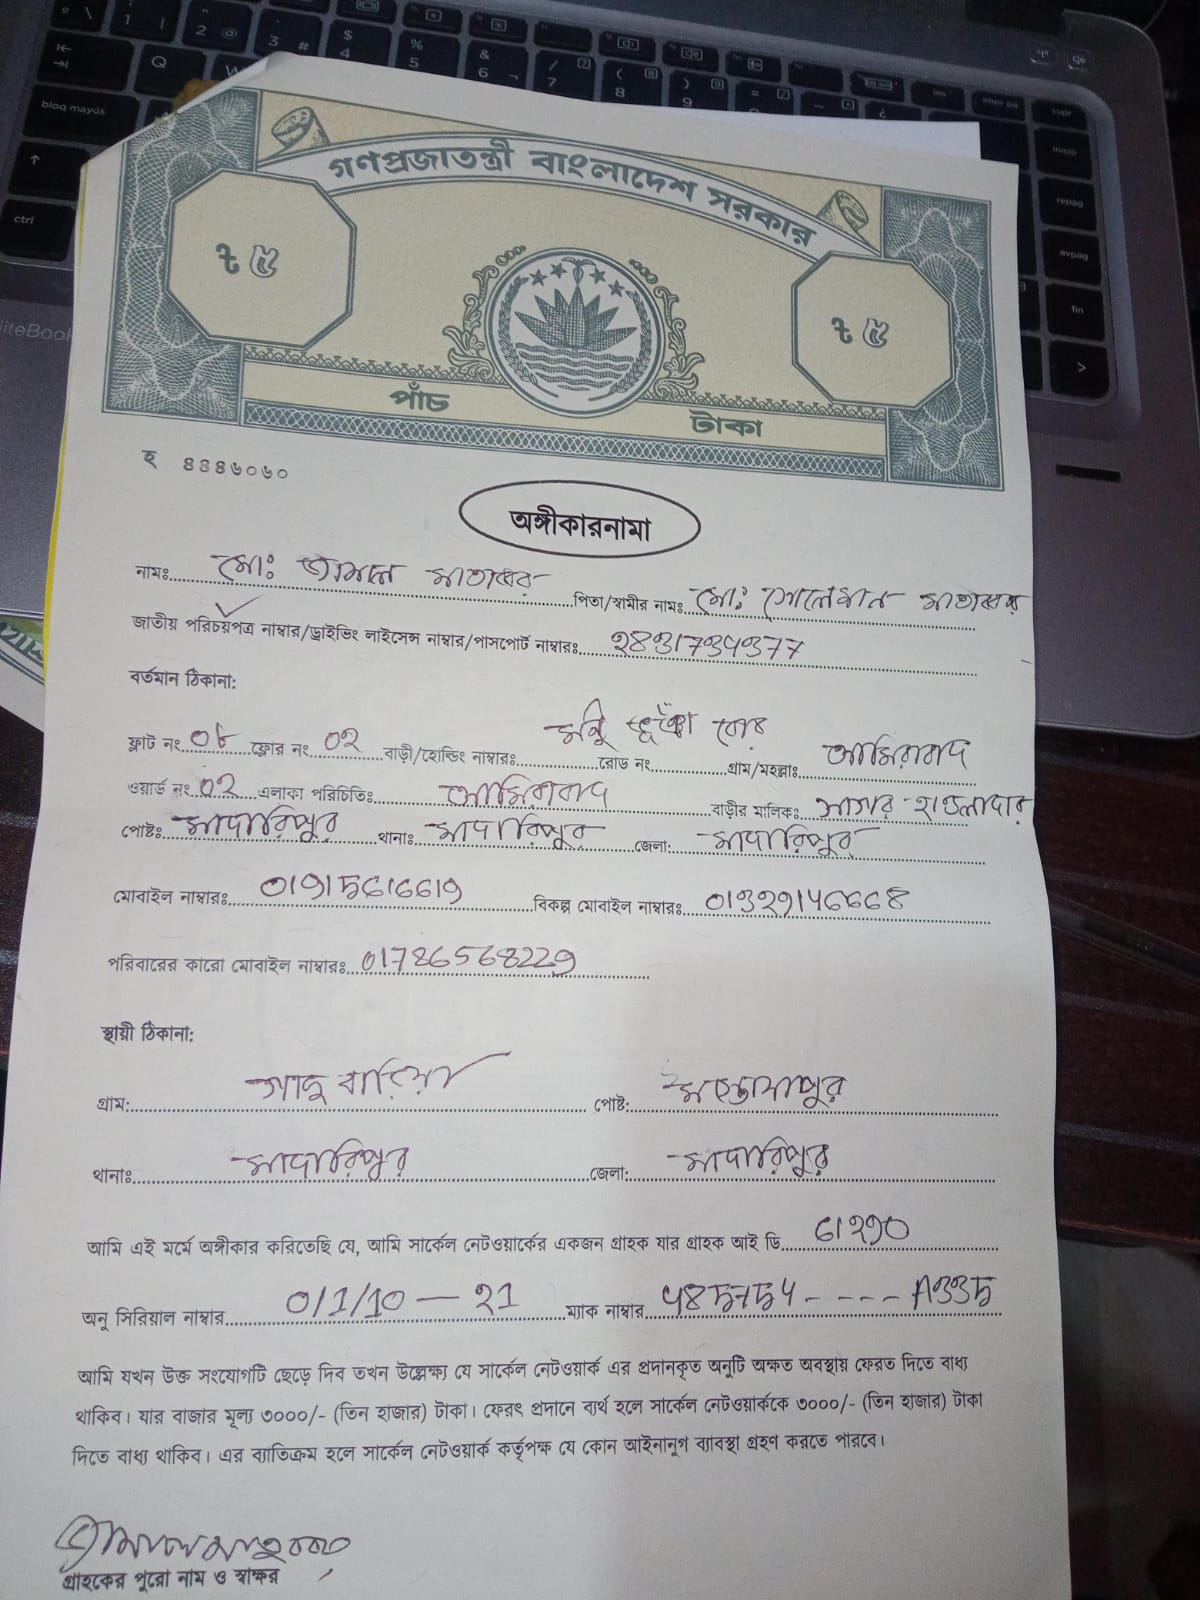 গণপ্রজাতন্ত্রী বাংলাদেশ সরকার
৳ ৫
৳ ৫
পাঁচ টাকা
হ ৪৪৪৬০৬০
অঙ্গীকারনামা
নামঃ মোঃ জামাল মাতাব্বর পিতা/স্বামীর নামঃ মোঃ সোলেমান মাতাব্বর
জাতীয় পরিচয়পত্র নাম্বার/ড্রাইভিং লাইসেন্স নাম্বার/পাসপোর্ট নাম্বারঃ
বর্তমান ঠিকানা:
ফ্লাট নং ফ্লোর নং ০২ বাড়ী/হোল্ডিং নাম্বারঃ রোড নং গ্রাম/মহল্লাঃ আমিরাবাদ
ওয়ার্ড নং ০২ এলাকা পরিচিতিঃ আমিরাবাদ বাড়ীর মালিকঃ সাগর হাওলাদার
পোষ্টঃ মাদারিপুর থানাঃ মাদারিপুর জেলা: মাদারিপুর
মোবাইল নাম্বারঃ বিকল্প মোবাইল নাম্বারঃ
পরিবারের কারো মোবাইল নাম্বারঃ 01786568229
স্থায়ী ঠিকানা:
গ্রাম: পোষ্ট: মস্তফাপুর
থানাঃ মাদারিপুর জেলা: মাদারিপুর
আমি এই মর্মে অঙ্গীকার করিতেছি যে, আমি সার্কেল নেটওয়ার্কের একজন গ্রাহক যার গ্রাহক আই ডি
অনু সিরিয়াল নাম্বার 0/1/10 — 21 ম্যাক নাম্বার
আমি যখন উক্ত সংযোগটি ছেড়ে দিব তখন উল্লেক্ষ্য যে সার্কেল নেটওয়ার্ক এর প্রদানকৃত অনুটি অক্ষত অবস্থায় ফেরত দিতে বাধ্য
থাকিব। যার বাজার মূল্য ৩০০০/- (তিন হাজার) টাকা। ফেরৎ প্রদানে ব্যর্থ হলে সার্কেল নেটওয়ার্ককে ৩০০০/- (তিন হাজার) টাকা
দিতে বাধ্য থাকিব। এর ব্যাতিক্রম হলে সার্কেল নেটওয়ার্ক কর্তৃপক্ষ যে কোন আইনানুগ ব্যাবস্থা গ্রহণ করতে পারবে।
গ্রাহকের পুরো নাম ও স্বাক্ষর